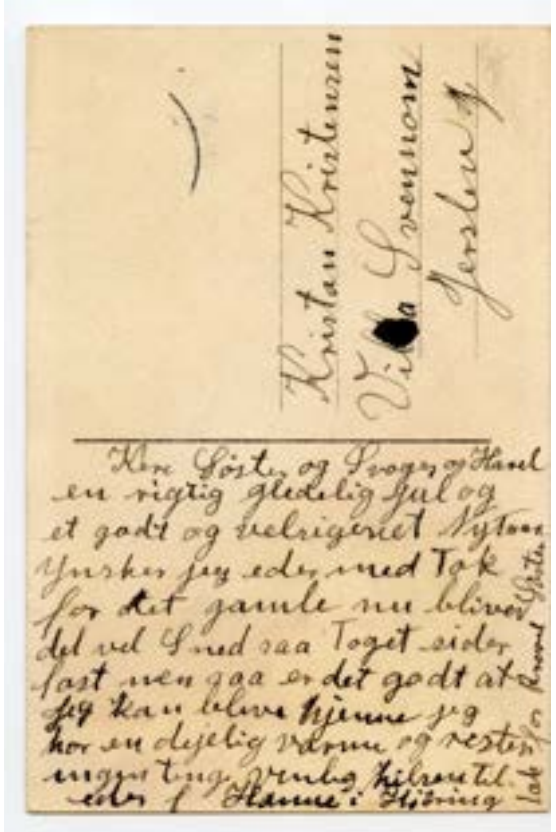 Kristan Kristensen
Villa Svennom
Jerslev J
Kere Søster og Svoger og Havel
en rigtig gledelig jul og
et godt og velsigenet Nytaar
Ynsker jeg eder med Tak
for det gamle nu bliver
det vel Sned saa Toget sider
fast men saa er det godt at
jeg kan blive hjemme jeg
har en dejelig varme og rester
ingen ting venlig hilsen til
eder f Hanne i Hjøring
Tak for Søster